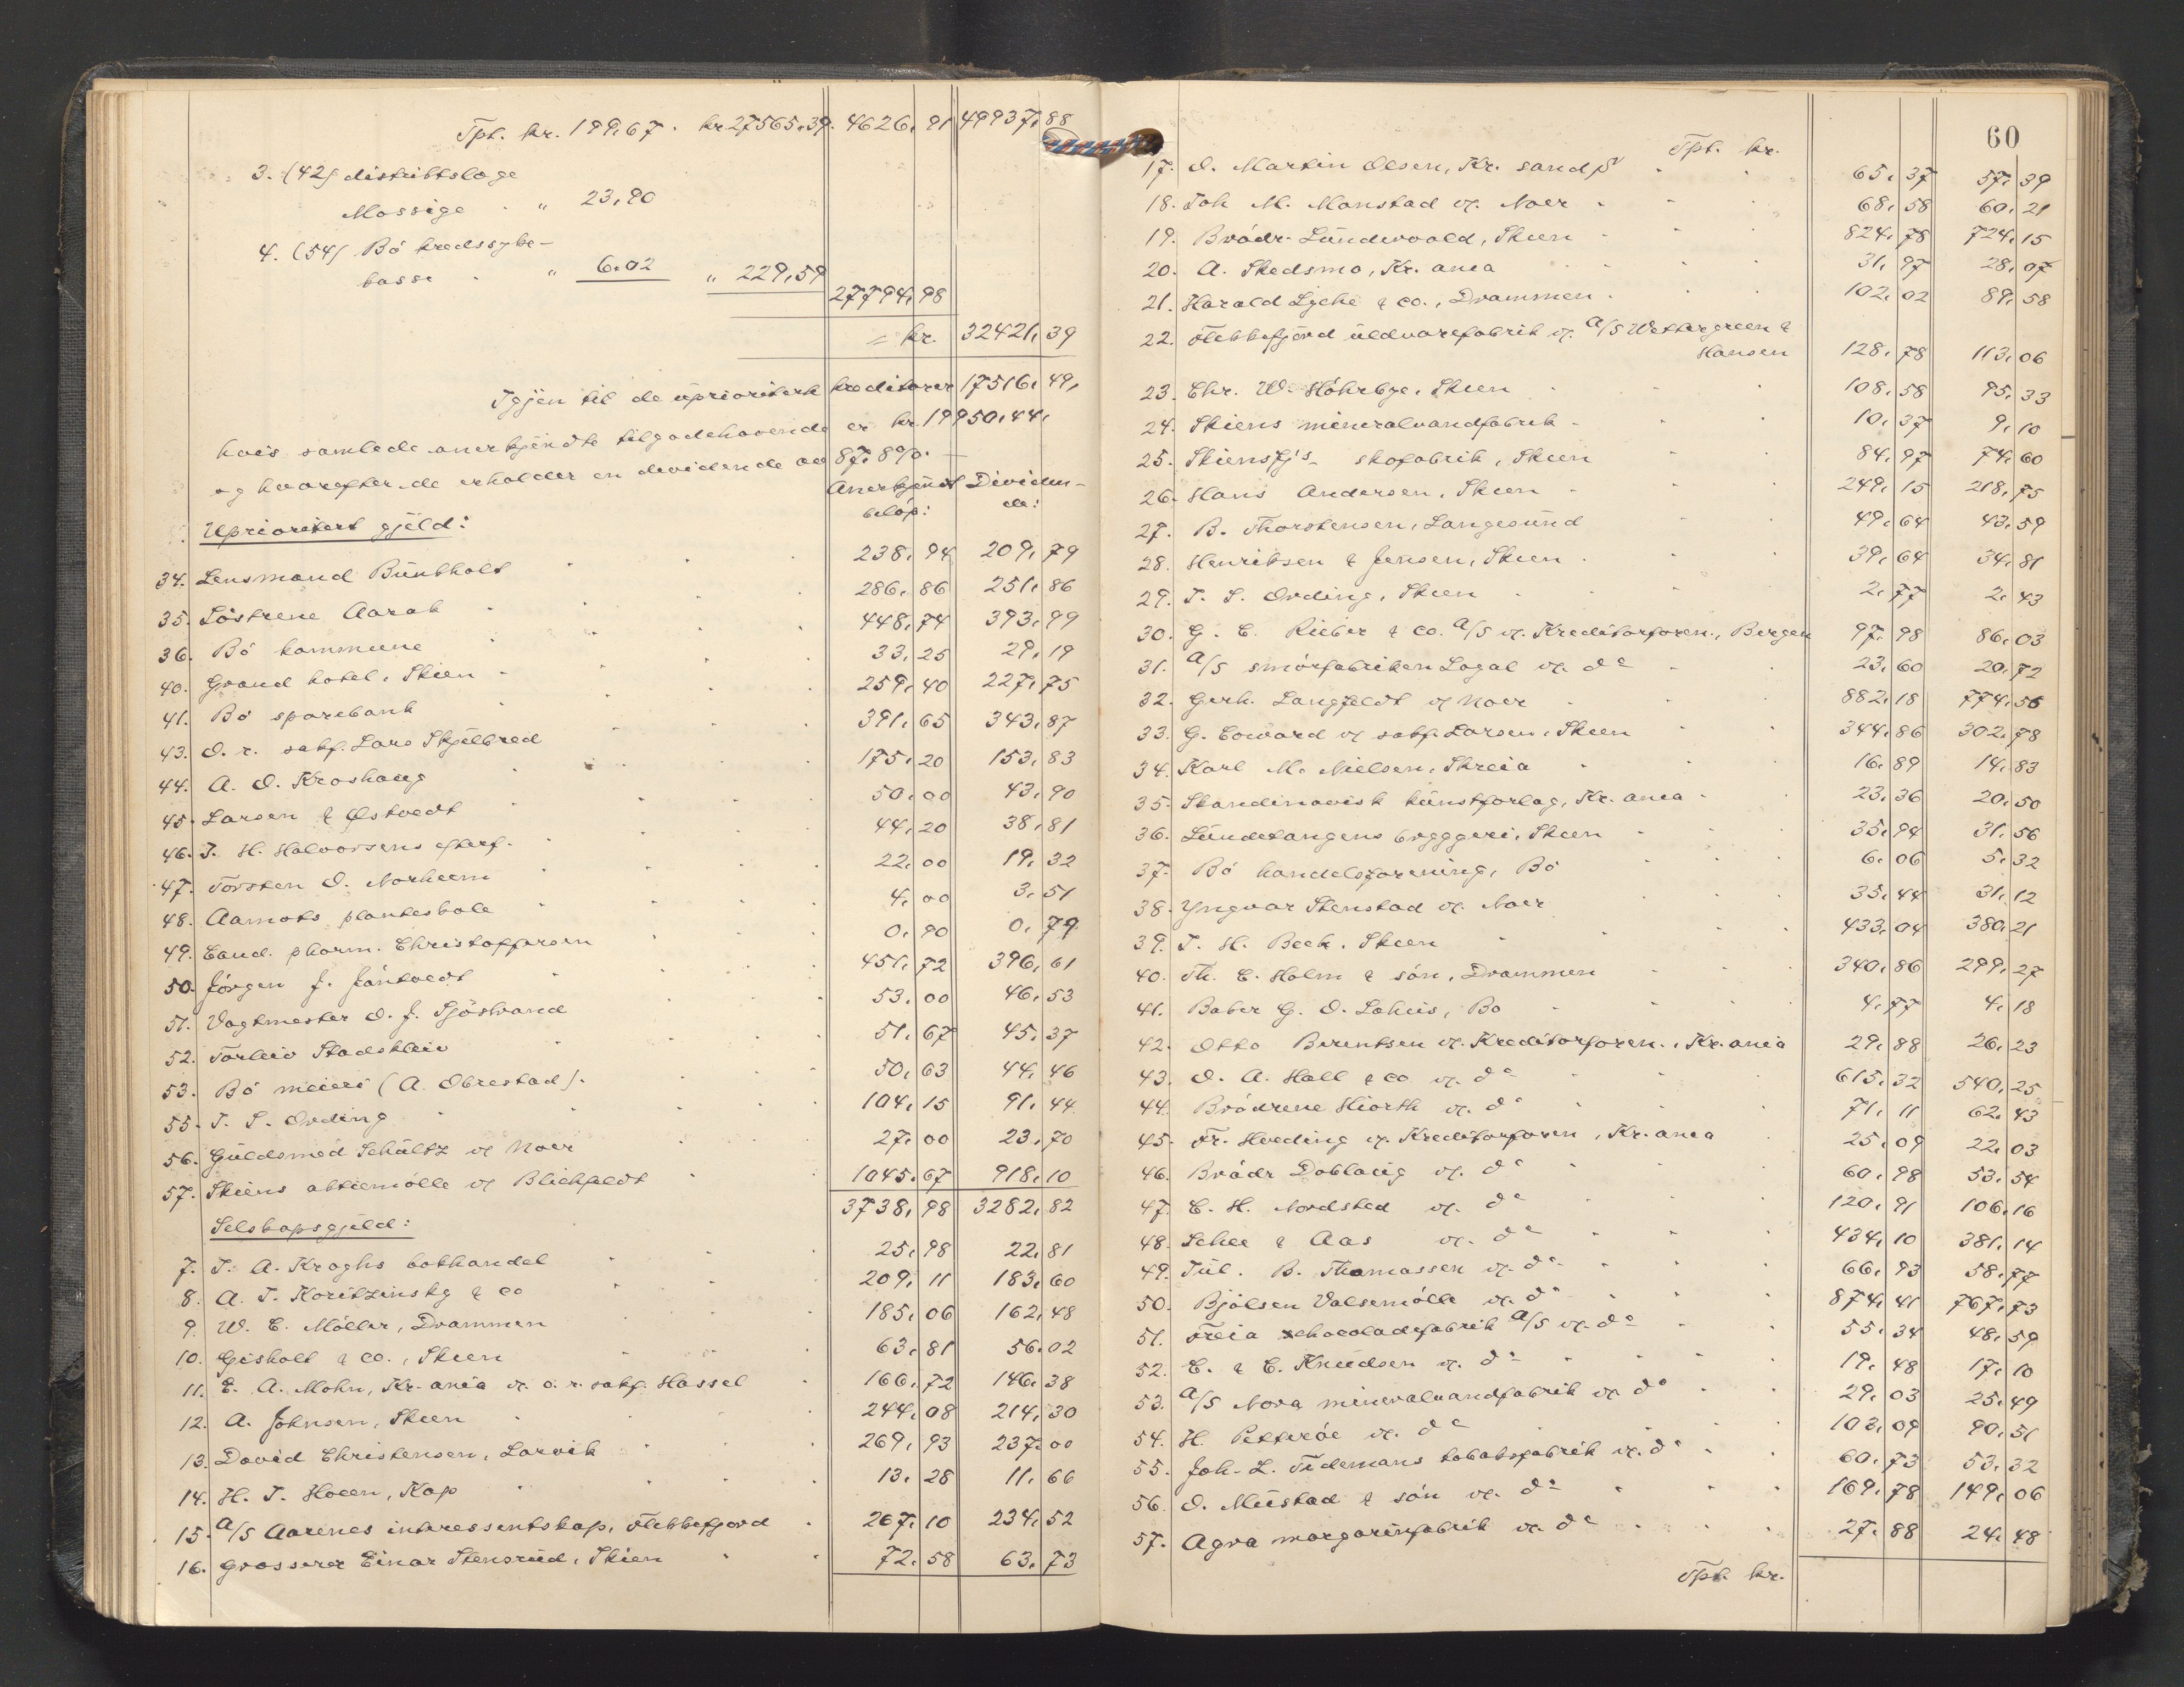 Tpt. kr. 199,67. kr 27565,39. 4626,91 49937,88
3. (42) distriktslæge
Mossige " 23,90
4. (54) Bö kredssyke-
kasse " 6.02 " 229,59
27794,98
= kr. 32421,39
Igjen til de uprioriterte kreditorer 17516,49,
hvis samlede anerkjendte tilgodehavende er kr. 19950,44,
og hvorefter de erholder en dividende av 87,8%. —
Anerkjendt Dividen-
beløp: de:
Uprioritert gjæld:
34. Lensmand Buntholt 238,94 209,79
35. Söstrene Aarak 286,86 251,86
36. Bö kommune 448,74 393,99
40. Grand hotel, Skien 33,25 29,19
41. Bö sparebank 259,40 227,75
43. O.r. sakf. Lars Skjelbred 391,65 343,87
44. A. O. Kroshaug 175,20 153,83
45. Larsen & Østvedt 50,00 43,90
46. T. H. Halvorsens efterf. 44,20 38,81
47. Torsten O. Norheim 22,00 19,32
48. Aamots planteskole 4,00 3,51
49. Cand. pharm. Christoffersen 0,90 0,79
50. Jörgen J. Jöntvedt 451,72 396,61
51. Vagtmester O. J. Sjöstrand 53,00 46,53
52. Torleiv Stadskleiv 51,67 45,37
53. Bö meieri (A. Obrestad). 50,63 44,46
55. T. S. Ording 104,15 91,44
56. Guldsmed Schultz v. Noer 27,00 23,70
57. Skiens aktiemölle v. Blichfeldt 1045,67 918,10
3738,98 3282,82
Selskapsgjæld:
7. T. A. Kroghs bokhandel 25,98 22,81
8. A. T. Koritzinsky & co 209,11 183,60
9. W. C. Möller, Drammen 185,06 162,48
10. Gisholt & co., Skien 63,81 56,02
11. E. A. Mohn, Kr.ania v. o.r. sakf. Hassel 166,72 146,38
12. A. Johnsen, Skien 244,08 214,30
13. David Christensen, Larvik 269,93 237,00
14. H. T. Hoeen, Kap 13,28 11,66
15. A/S Aarenes interessentskap, Flekkefjord 267,10 234,52
16. Grosserer Einar Stensrud, Skien 72,58 63,73
60
Tpt. kr.
17. O. Martin Olsen, Kr. sand S 65,37 57,39
18. Joh M. Monstad v. Noer 68,58 60,21
19. Brödr. Lundevold, Skien 824,78 724,15
20. A. Skedsmo, Kr. ania 31,97 28,07
21. Harald Lyche & co., Drammen 102,02 89,58
22. Flekkefjord uldvarefabrik v. A/S Wettergreen &
Hansen 128,78 113,06
23. Chr. W. Höhrbye, Skien 108,58 95,33
24. Skiens mineralvandfabrik 10,37 9,10
25. Skiensfj's skofabrik, Skien 84,97 74,60
26. Hans Andersen, Skien 249,15 218,75
27. B. Thorstensen, Langesund 49,64 43,59
28. Henriksen & Jensen, Skien 39,64 34,81
29. T. S. Ording, Skien 2,77 2,43
30. G. C. Rieber & co. A/S v. Kreditorforen., Bergen 97,98 86,03
31. A/S smörfabriken Logal v. do 23,60 20,72
32. Gerh. Langfeldt v Noer 882,18 774,56
33. G. Coward v sakf. Larsen, Skien 344,86 302,78
34. Karl M. Nielsen, Skreia 16,89 14,83
35. Skandinavisk kunstforlag, Kr. ania 23,36 20,50
36. Lundetangens bryggeri, Skien 35,94 31,56
37. Bö handelsforening, Bö 6,06 5,32
38. Yngvar Stenstad v. Noer 35,44 31,12
39. T. H. Beck, Skien 433,04 380,21
40. Th. C. Holm & sön, Drammen 340,86 299,27
41. Baker G. O. Lohus, Bö 4,77 4,18
42. Otto Berentsen v. Kreditorforen., Kr. ania 29,88 26,23
43. O. A. Hall & co v. do 615,32 540,25
44. Brödrene Hiorth v. do 71,11 62,43
45. Fr. Hveding v. Kreditorforen, Kr. ania 25,09 22,03
46. Brödr Dobloug v. do 60,98 53,54
47. C. H. Nordsted v. do 120,91 106,16
48. Schee & Aas v. do 434,10 381,14
49. Jul. B. Thomassen v. do 66,93 58,77
50. Bjölsen Valsemölle v. do 874,41 767,73
51. Freia chocoladefabrik A/S v. do 55,34 48,59
52. C. & C. Knudsen v. do 19,48 17,10
53. A/S Nora mineralvandfabrik v. do 29,03 25,49
54. H. Petteröe v. do 103,09 90,51
55. Joh. L. Tidemans tobaksfabrik v. do 60,73 53,32
56. O. Mustad & sön v. do 169,78 149,06
57. Agra margarinfabrik v. do 27,88 24,48
Tpt. kr.